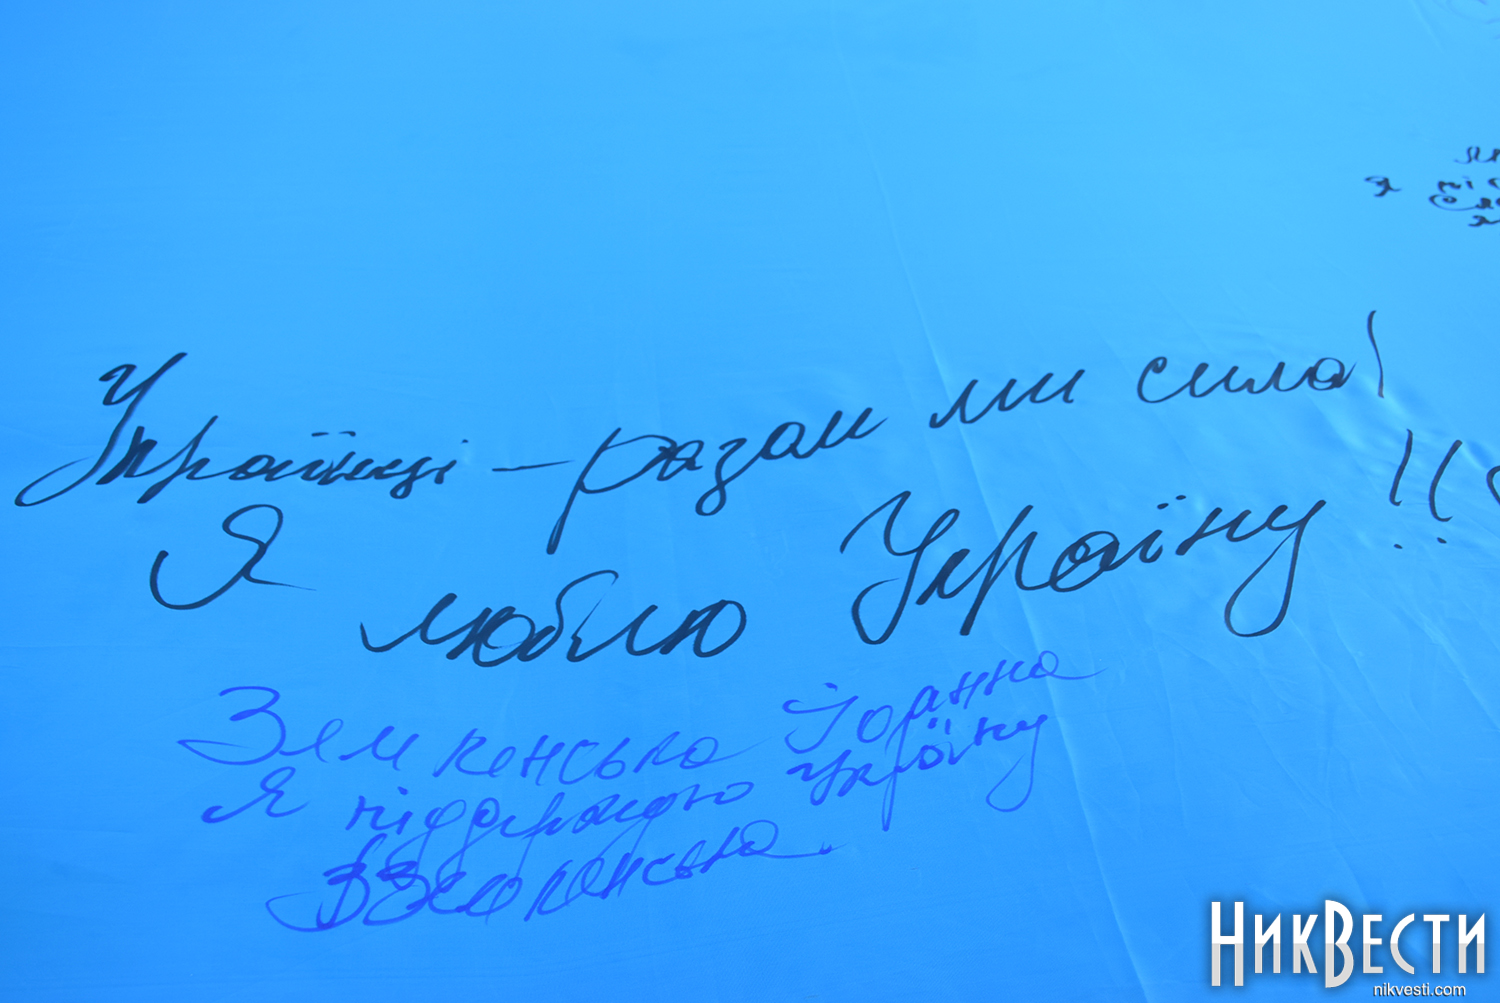 я
Українці – разом ми сила!
Я люблю Україну!!
Йоанна
Я підтримую Україну
НикВести
nikvesti.com